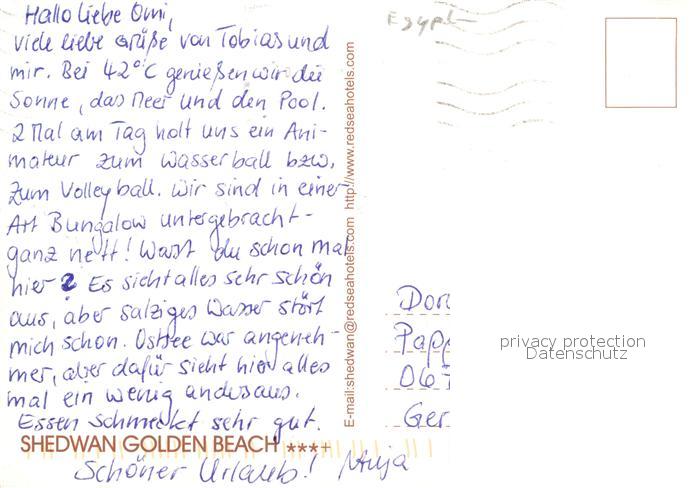 Hallo liebe Omi,
viele liebe Grüße von Tobias und
mir. Bei 42°C genießen wir die
Sonne, das Meer und den Pool.
2 Mal am Tag holt uns ein Ani-
mateur zum Wasserball bzw.
zum Volleyball. Wir sind in einer
Art Bungalow untergebracht -
ganz nett! Warst du schon mal
hier? Es sieht alles sehr schön
aus, aber salziges Wasser stört
mich schon. Ostsee war angeneh-
mer, aber dafür sieht hier alles
mal ein wenig anders aus.
Essen schmeckt sehr gut.
SHEDWAN GOLDEN BEACH ****
Schöner Urlaub!
E-mail:shedwan@redseahotels.com http://www.redseahotels.com
Egypt
Dor
Papp
067
Ger
privacy protection
Datenschutz